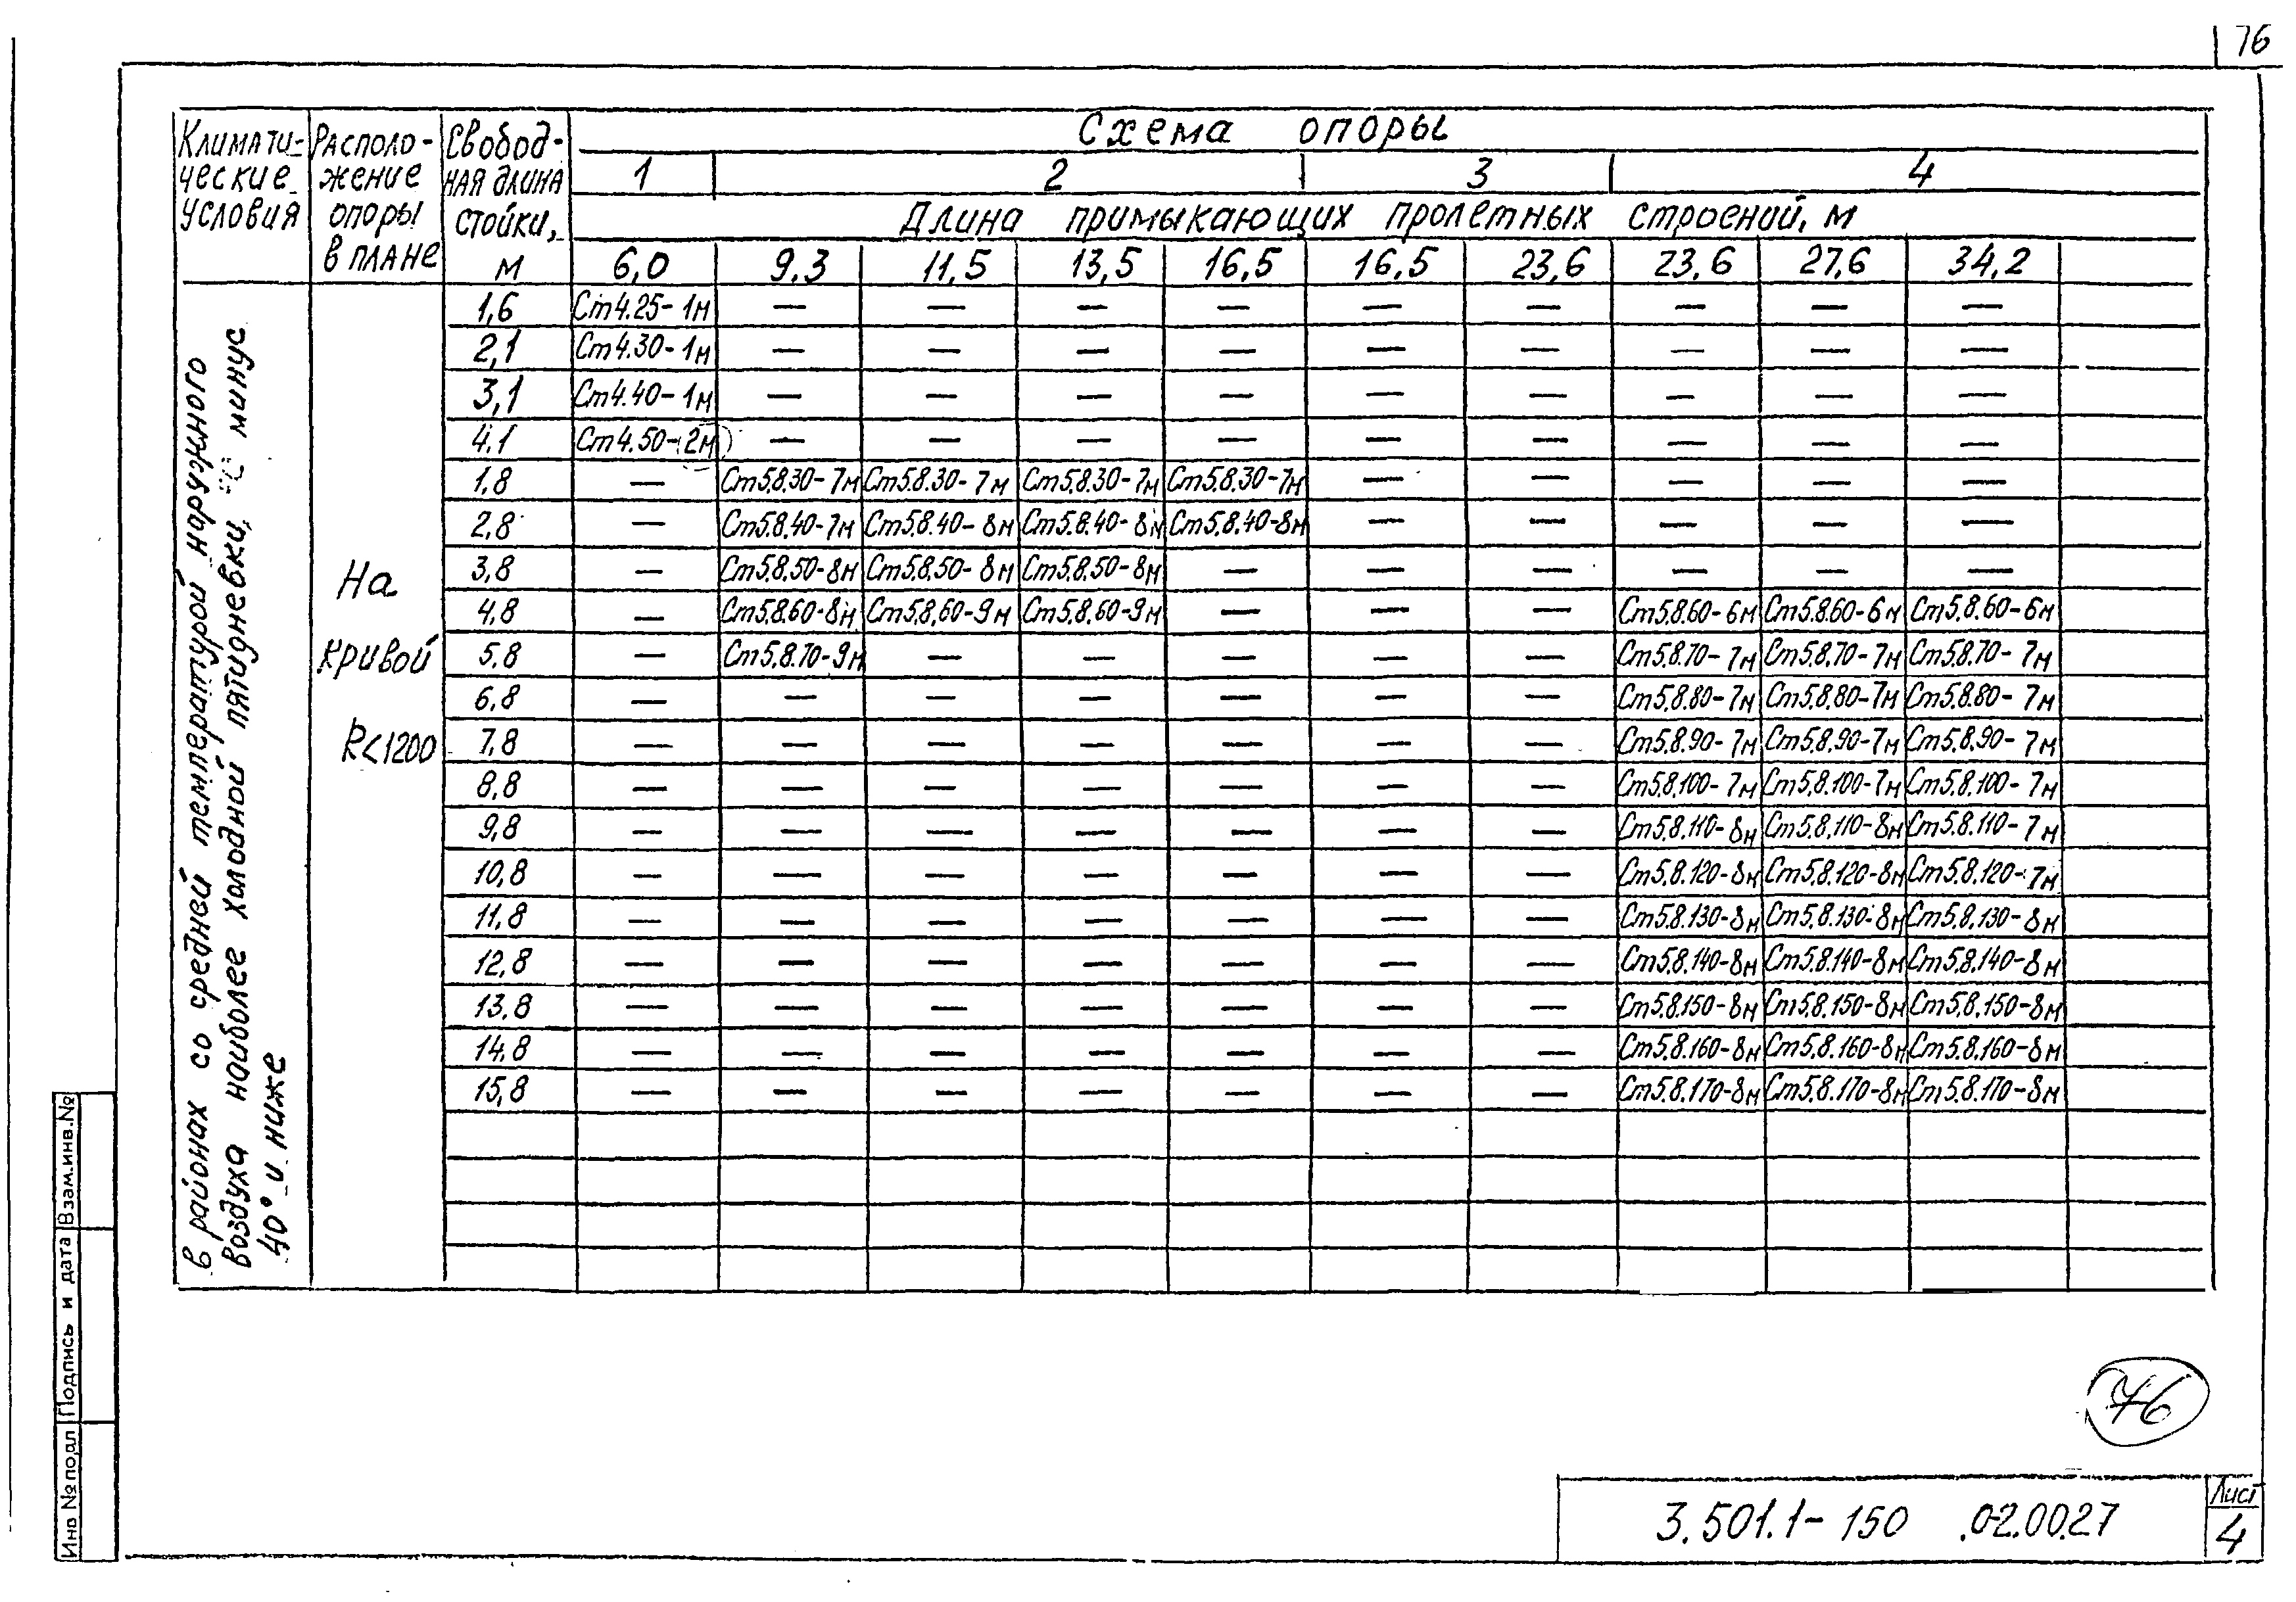 76
Климати- Располо- Свобод- Схема опоры
ческие жение ная длина 1 2 3 4
условия опоры стойки, Длина примыкающих пролетных строений, м
в плане м 6,0 9.3 11,5 13,5 16,5 16,5 23,6 23.6 27,6 34,2
в районах со средней температурой наружного
воздуха наиболее холодной пятидневки, °С минус
40° и ниже
На
кривой
R<1200
1,6 Ст4.25-1м — — — — — — — — —
2,1 Ст4.30-1м — — — — — — — — —
3,1 Ст4.40-1м — — — — — — — — —
4,1 Ст4.50-2м — — — — — — — — —
1,8 — Ст5.8.30-7м Ст5.8.30-7м Ст5.8.30-7м Ст5.8.30-7м — — — — —
2,8 — Ст5.8.40-7м Ст5.8.40-8м Ст5.8.40-8м Ст5.8.40-8м — — — — —
3,8 — Ст5.8.50-8м Ст5.8.50-8м Ст5.8.50-8м — — — — — —
4,8 — Ст5.8.60-8м Ст5.8.60-9м Ст5.8.60-9м — — — Ст5.8.60-6м Ст5.8.60-6м Ст5.8.60-6м
5,8 — Ст5.8.70-9м — — — — — Ст5.8.70-7м Ст5.8.70-7м Ст5.8.70-7м
6,8 — — — — — — — Ст5.8.80-7м Ст5.8.80-7м Ст5.8.80-7м
7,8 — — — — — — — Ст5.8.90-7м Ст5.8.90-7м Ст5.8.90-7м
8,8 — — — — — — — Ст5.8.100-7м Ст5.8.100-7м Ст5.8.100-7м
9,8 — — — — — — — Ст5.8.110-8м Ст5.8.110-8м Ст5.8.110-7м
10,8 — — — — — — — Ст5.8.120-8м Ст5.8.120-8м Ст5.8.120-7м
11,8 — — — — — — — Ст5.8.130-8м Ст5.8.130-8м Ст5.8.130-8м
12,8 — — — — — — — Ст5.8.140-8м Ст5.8.140-8м Ст5.8.140-8м
13,8 — — — — — — — Ст5.8.150-8м Ст5.8.150-8м Ст5.8.150-8м
14,8 — — — — — — — Ст5.8.160-8м Ст5.8.160-8м Ст5.8.160-8м
15,8 — — — — — — — Ст5.8.170-8м Ст5.8.170-8м Ст5.8.170-8м
Инв № подл Подпись и дата Взам.инв.№
76
3.501.1-150 .02.00.27
Лист
4